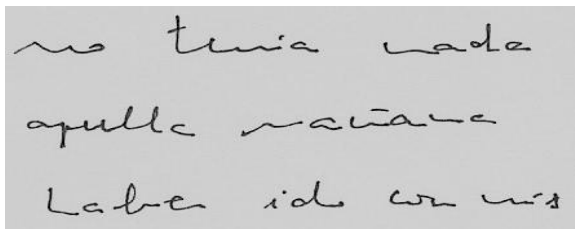 no tenia nada
aquella mañana
haber ido con mis